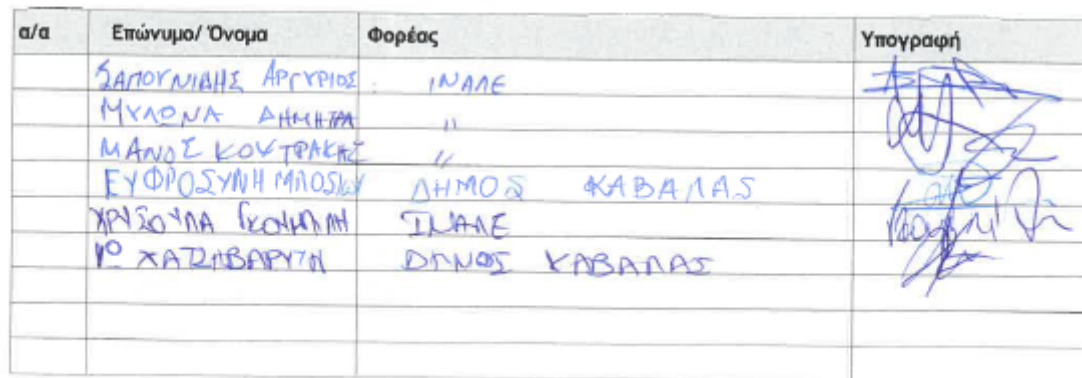 α/α Επώνυμο/ Όνομα Φορέας Υπογραφή
ΣΑΠΟΥΝΙΔΗΣ ΑΡΓΥΡΙΟΣ ΙΝΑΛΕ
ΜΥΛΩΝΑ ΔΗΜΗΤΡΑ "
ΜΑΝΟΣ ΚΟΥΤΡΑΚΗΣ "
ΕΥΦΡΟΣΥΝΗ ΔΗΜΟΣ ΚΑΒΑΛΑΣ
ΧΡΥΣΟΥΛΑ ΙΝΑΛΕ
ΔΗΜΟΣ ΚΑΒΑΛΑΣ